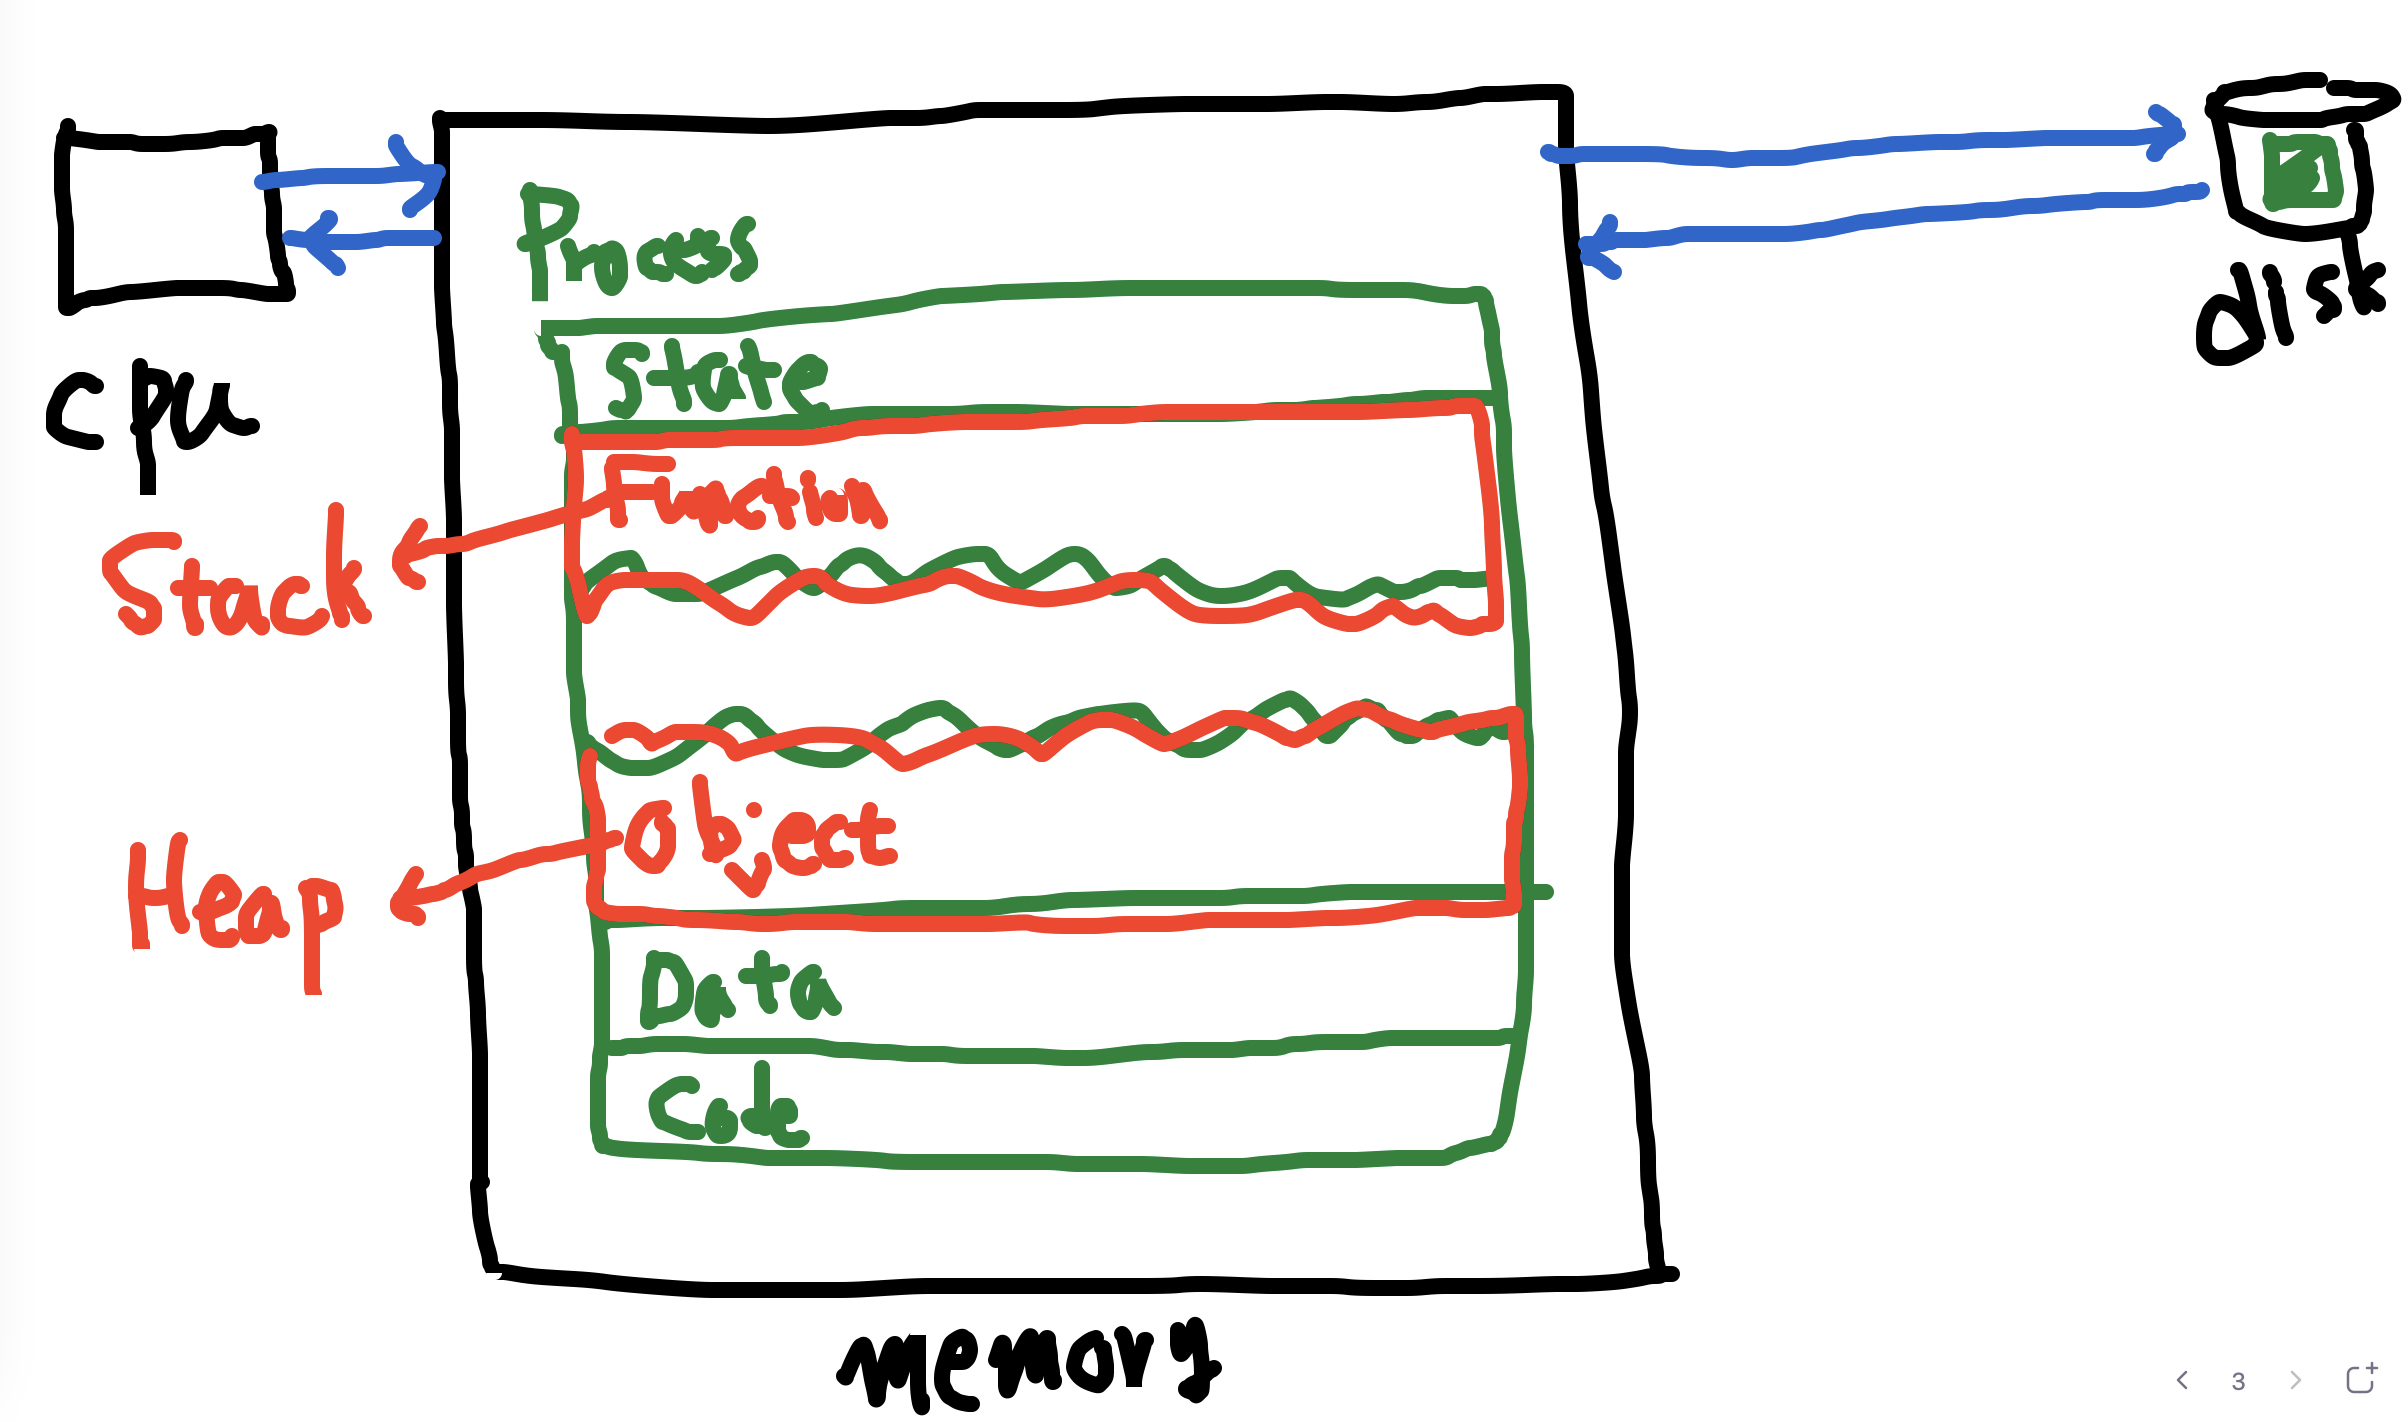 cpu
Process
disk
State
Function
Stack
Object
Heap
Data
Code
memory
3